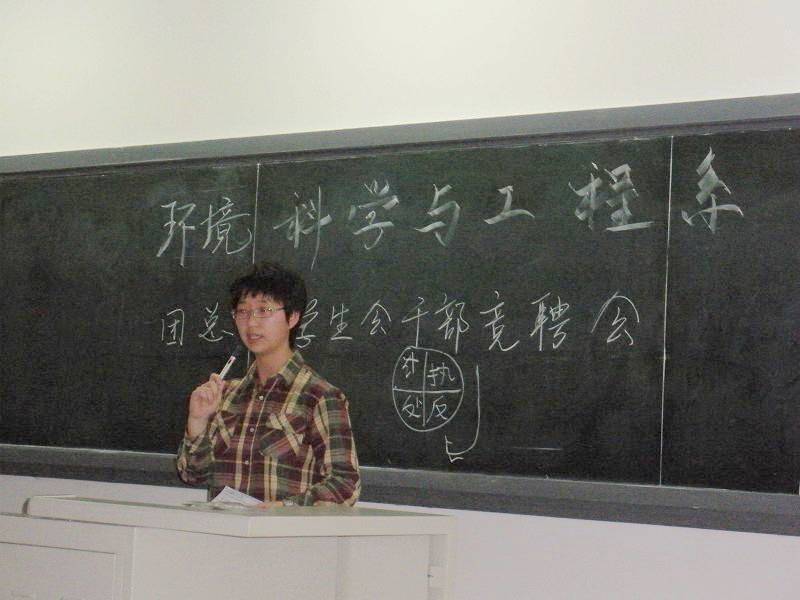 环境科学与工程系
团总 学生会干部竞聘会
计 执
处 反